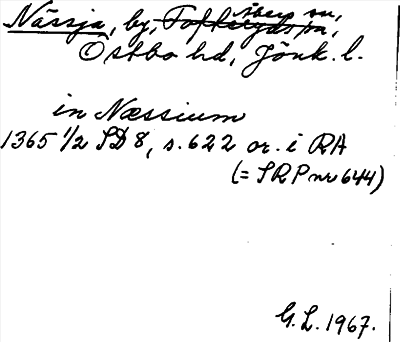 Nässja, by, Åkers sn,
Östbo hd, Jönk. l.
in Næssium
1365 1/2 SD 8, s. 622 or. i RA
(= SRP nr 644)
G. L. 1967.